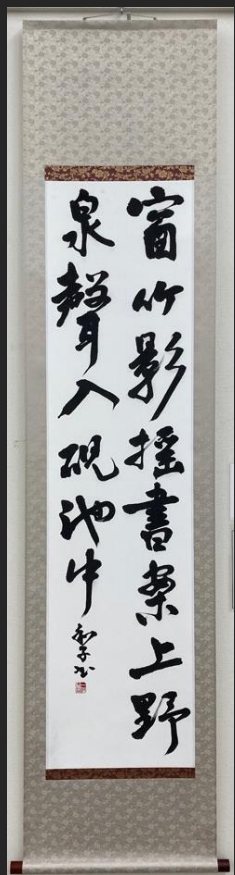 窗竹影摇書案上野
泉聲入硯池中